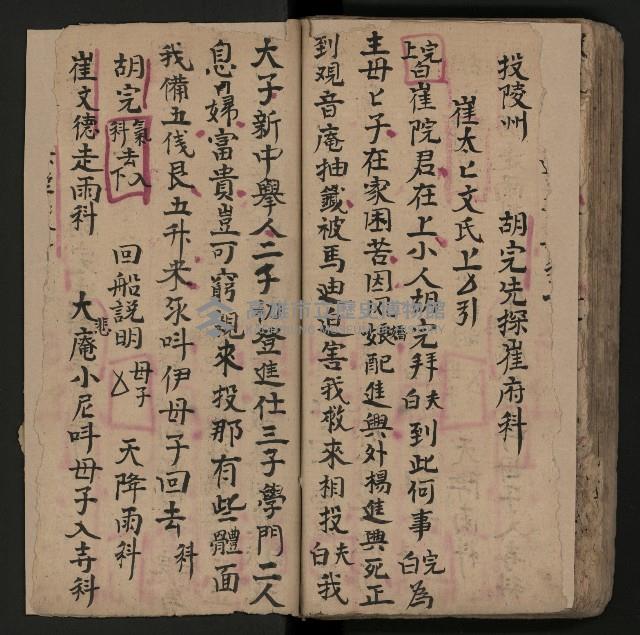 投陵州　胡完先探崔府科
崔太匕文氏上 引
完上白崔院君在上小人胡完拜夫白到此何事完白為
主毋匕子在家困苦因 娘 配進興外楊進興死正
到观音庵抽籤被馬迪 害我救來相投夫白我
大子新中舉人二子 登進仕三子學門二人
息 婦富貴豈可窮 來投那有些體面
我備五 艮五升米 呌伊母子回去科
胡完氣介科去入下　回船説明母子　天降雨科
崔文德走雨科　大悲庵小尼呌母子入寺科
高雄市立歷史博物館